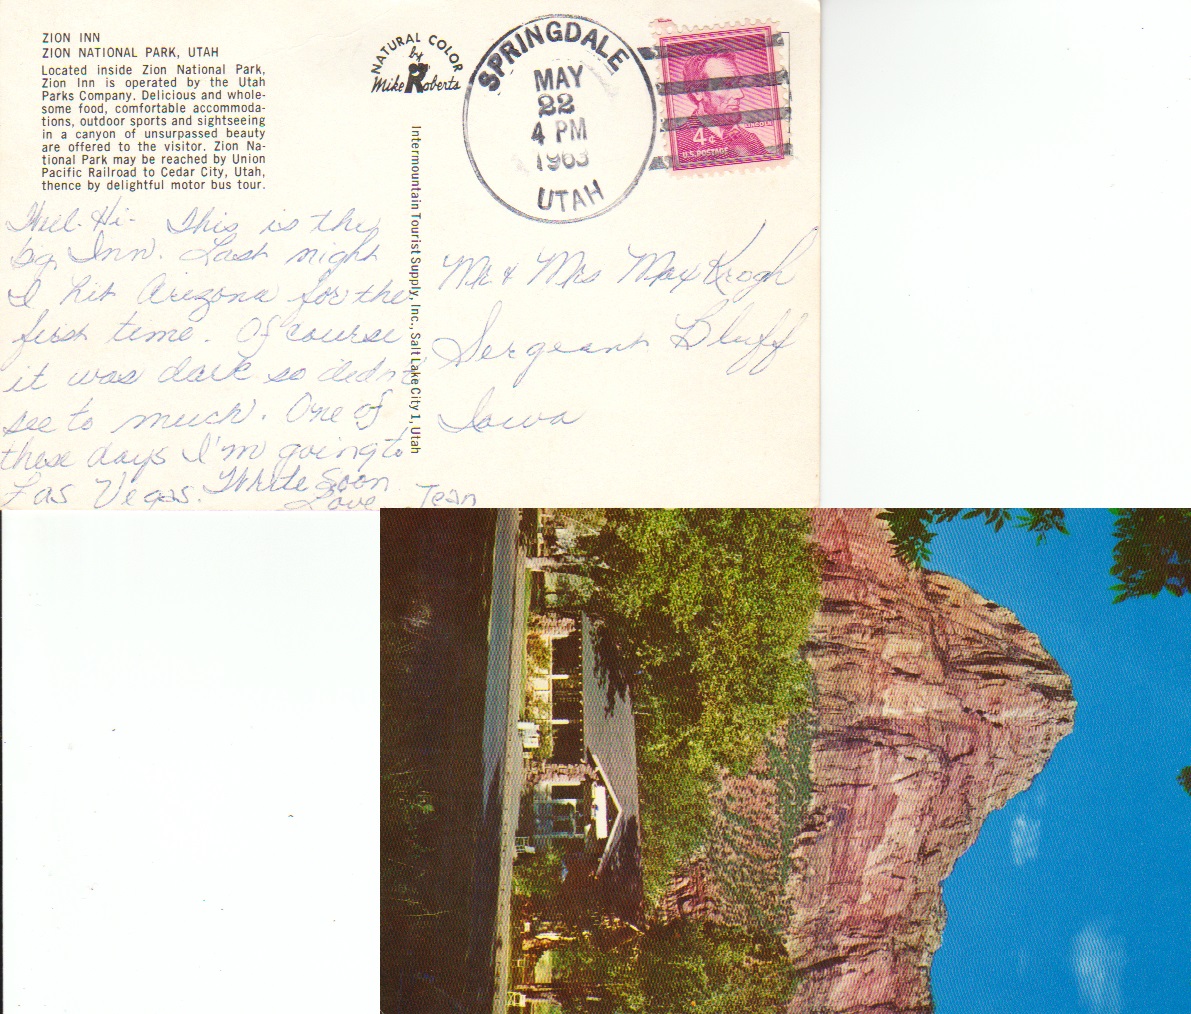 ZION INN
ZION NATIONAL PARK, UTAH
Located inside Zion National Park,
Zion Inn is operated by the Utah
Parks Company. Delicious and whole-
some food, comfortable accommoda-
tions, outdoor sports and sightseeing
in a canyon of unsurpassed beauty
are offered to the visitor. Zion Na-
tional Park may be reached by Union
Pacific Railroad to Cedar City, Utah,
thence by delightful motor bus tour.
NATURAL COLOR
by
Mike Roberts
SPRINGDALE
MAY
22
4 PM
1963
UTAH
LINCOLN
4¢
U.S. POSTAGE
Intermountain Tourist Supply, Inc., Salt Lake City 1, Utah
Hi- This is the
big Inn. Last night
I hit Arizona for the
first time. Of course
it was dark so didn't
see to much. One of
these days I'm going to
Las Vegas. Write Soon
Love Jean
Mr & Mrs Max Krogh
Sergeant Bluff
Iowa